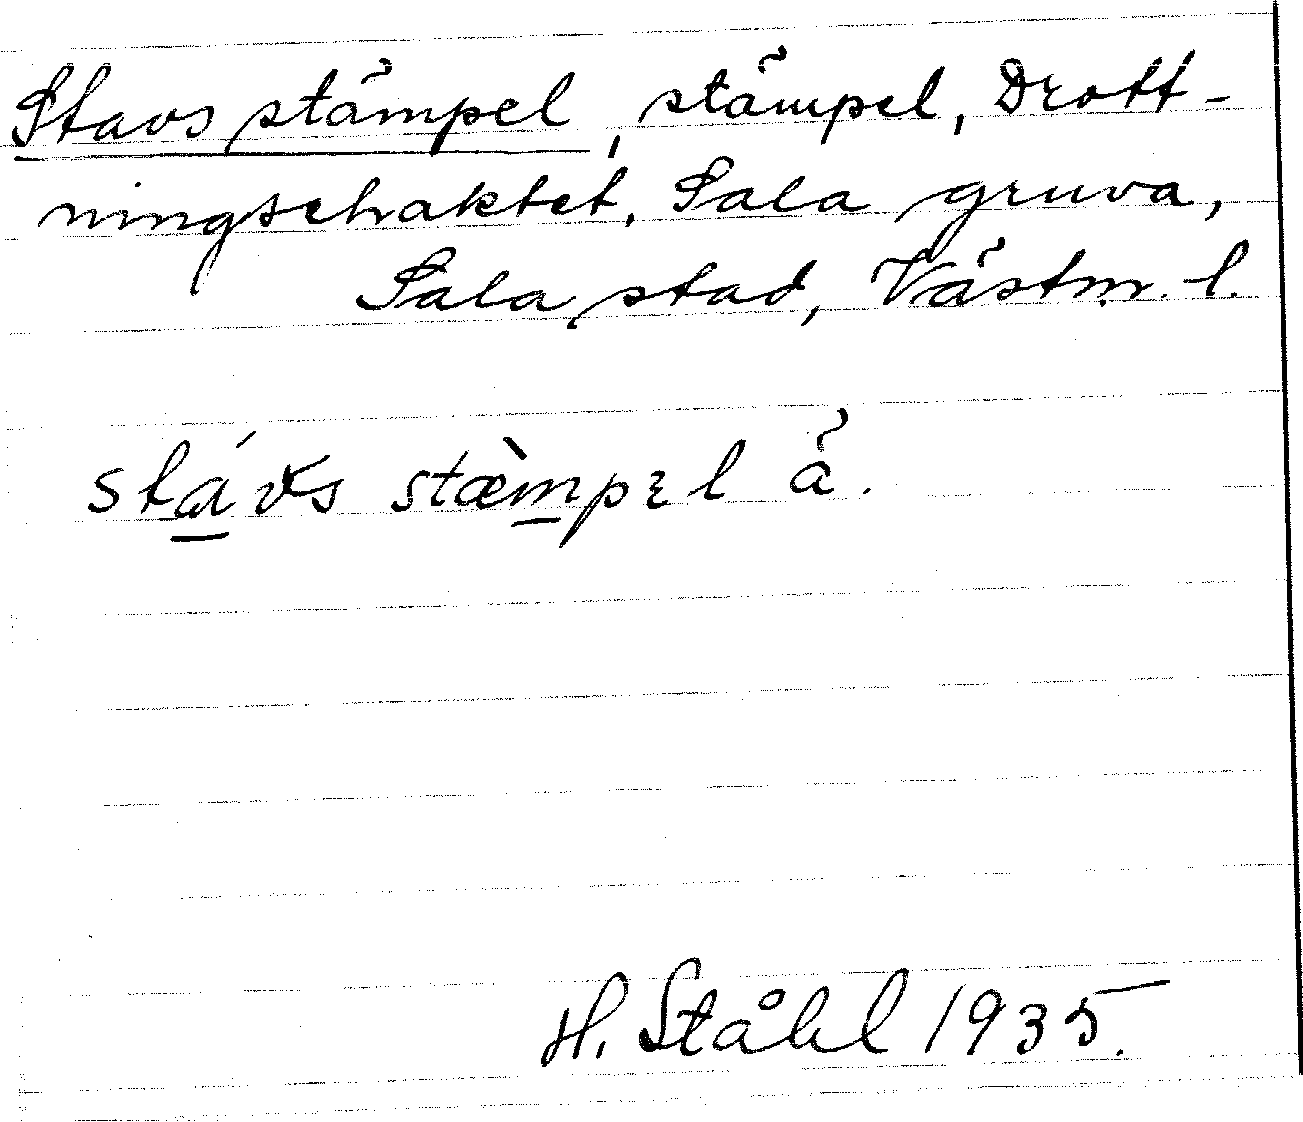 Stavs stämpel, stämpel, Drott-
ningschaktet, Sala gruva,
Sala stad, Västm. l.
stávs stæ̀mpεl ä.
H. Ståhl 1935.